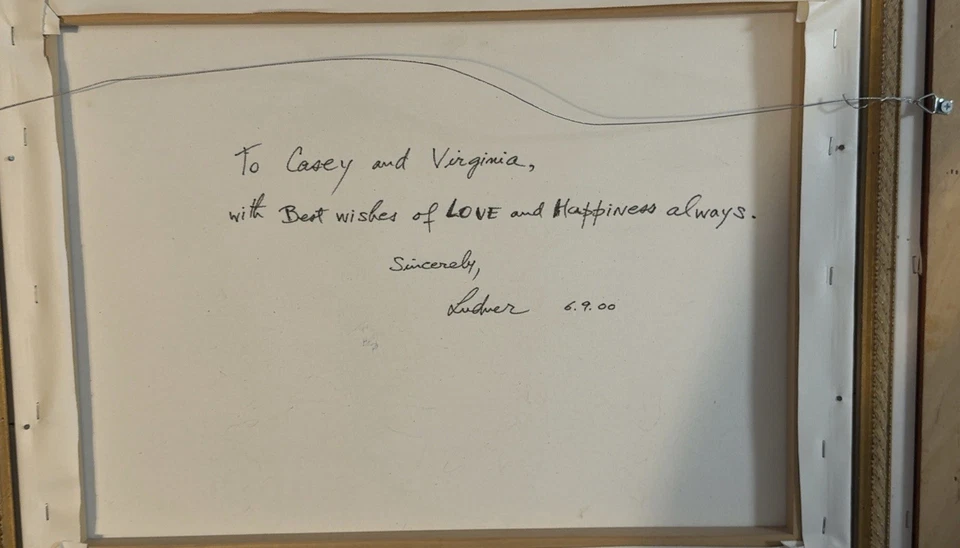 To Casey and Virginia,
with Best wishes of LOVE and Happiness always.
Sincerely,
6.9.00